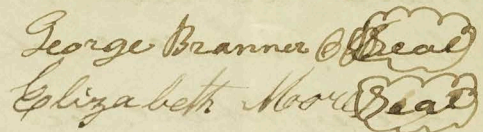 George Branner Seal
Elizabeth Moore Seal